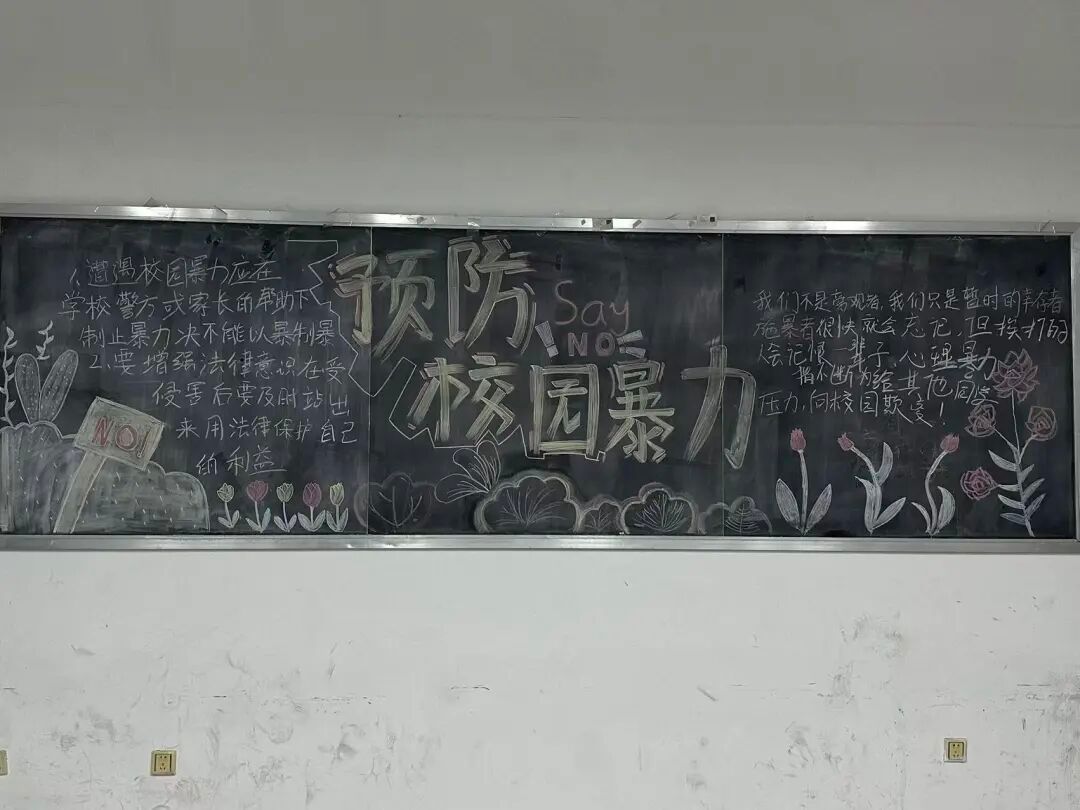 1、遭遇校园暴力应在
学校警方或家长的帮助下
制止暴力决不能以暴制暴
2、要增强法律意识在受
侵害后要及时站出
来用法律保护自己
的利益
NO!
预防
校园暴力
Say
NO
我们不是旁观者,我们只是暂时的幸存者
施暴者很快就会忘记,但挨打的
会记恨一辈子,心理暴力
指不断为给其他同学
压力,向校园欺凌